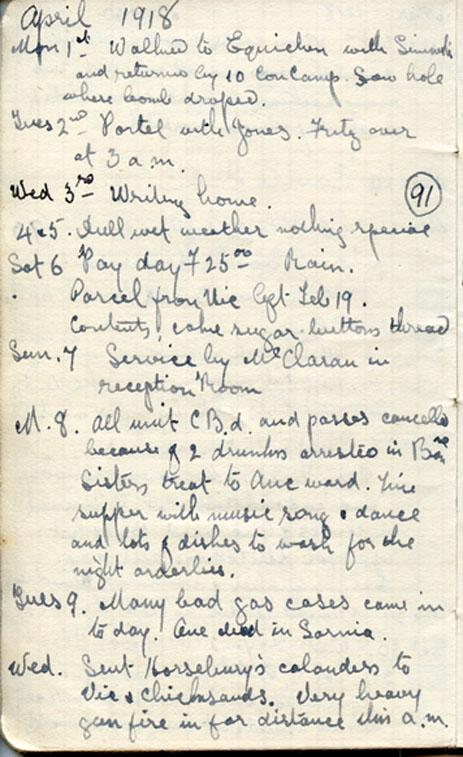 April 1918
Mon 1st Walked to Equichen with
and returned by 10 Con Camp. Saw hole
where bomb droped.
Tues 2nd Portel with Jones. Fritz over
at 3 a.m.
Wed 3rd Writing home.
91
4 & 5. dull wet weather nothing special
Sat 6 Pay day F 25.00 Rain.
Parcel from Vic Feb 19.
Contents, sugar buttons thread
Sun. 7 Service by McClaran in
reception Room
M. 8. All unit C.B.d. and passes cancelled
because of 2 drunks arrested in
Sisters treat to Anc ward. Fine
supper with music song & dance
and lots of dishes to wash for the
night orderlies.
Tues 9. Many bad gas cases came in
to day. One died in Sarnia.
Wed. Sent Horsebury's calanders to
Vic & Chicksands. Very heavy
gun fire in far distance this a.m.